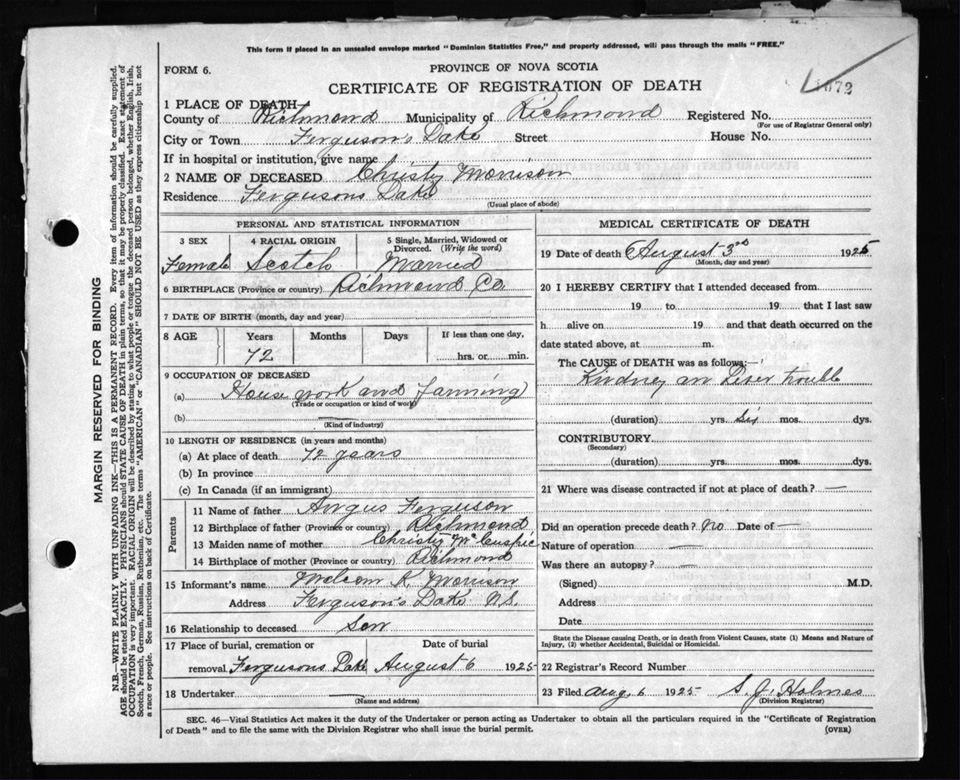 This form if placed in an unsealed envelope marked "Dominion Statistics Free," and properly addressed, will pass through the mails "FREE."
FORM 6.
PROVINCE OF NOVA SCOTIA
CERTIFICATE OF REGISTRATION OF DEATH
1 PLACE OF DEATH
County of Richmond Municipality of Richmond Registered No.
(For use of Registrar General only)
City or Town Ferguson's Lake Street House No.
If in hospital or institution, give name
2 NAME OF DECEASED Christy Morrison
Residence Fergusons Lake
(Usual place of abode)
PERSONAL AND STATISTICAL INFORMATION
3 SEX 4 RACIAL ORIGIN 5 Single, Married, Widowed or Divorced. (Write the word)
Female Scotch Married
6 BIRTHPLACE (Province or country) Richmond Co
7 DATE OF BIRTH (month, day and year)
8 AGE Years Months Days If less than one day,
72 hrs. or min.
9 OCCUPATION OF DECEASED
(a) House work and farming
(Trade or occupation or kind of work)
(b) —
(Kind of industry)
10 LENGTH OF RESIDENCE (in years and months)
(a) At place of death 72 years
(b) In province
(c) In Canada (if an immigrant)
Parents
11 Name of father Angus Ferguson
12 Birthplace of father (Province or country) Richmond
13 Maiden name of mother Christy Mc Cuspic
14 Birthplace of mother (Province or country) Richmond
15 Informant's name K. Morrison
Address Ferguson's Lake N.S.
16 Relationship to deceased Son
17 Place of burial, cremation or removal Fergusons Lake
Date of burial August 6 1925
18 Undertaker —
(Name and address)
MEDICAL CERTIFICATE OF DEATH
19 Date of death August 3rd 1925
(Month, day and year)
20 I HEREBY CERTIFY that I attended deceased from
19 to 19 that I last saw
h alive on 19 and that death occurred on the
date stated above, at m.
The CAUSE of DEATH was as follows:—
Kindney an Liver trouble
(duration) yrs. six mos. dys.
CONTRIBUTORY
(Secondary)
(duration) yrs. mos. dys.
21 Where was disease contracted if not at place of death? —
Did an operation precede death? no Date of —
Nature of operation —
Was there an autopsy? —
(Signed) M.D.
Address
Date
State the Disease causing Death, or in death from Violent Causes, state (1) Means and Nature of Injury, (2) whether Accidental, Suicidal or Homicidal.
22 Registrar's Record Number
23 Filed Aug. 6 1925 S. J. Holmes
(Division Registrar)
SEC. 46—Vital Statistics Act makes it the duty of the Undertaker or person acting as Undertaker to obtain all the particulars required in the "Certificate of Registration
of Death" and to file the same with the Division Registrar who shall issue the burial permit.
(OVER)
MARGIN RESERVED FOR BINDING
N.B.—WRITE PLAINLY WITH UNFADING INK—THIS IS A PERMANENT RECORD. Every item of information should be carefully supplied.
AGE should be stated EXACTLY. PHYSICIANS should STATE CAUSE OF DEATH in plain terms, so that it may be properly classified. Exact statement of
OCCUPATION is very important. RACIAL ORIGIN will be described by stating to what people or tongue the deceased person belonged, whether English, Irish,
Scotch, French, German, Russian, Ruthenian, etc. The terms "AMERICAN" or "CANADIAN" SHOULD NOT BE USED as they express citizenship but not
a race or people. See instructions on back of Certificate.